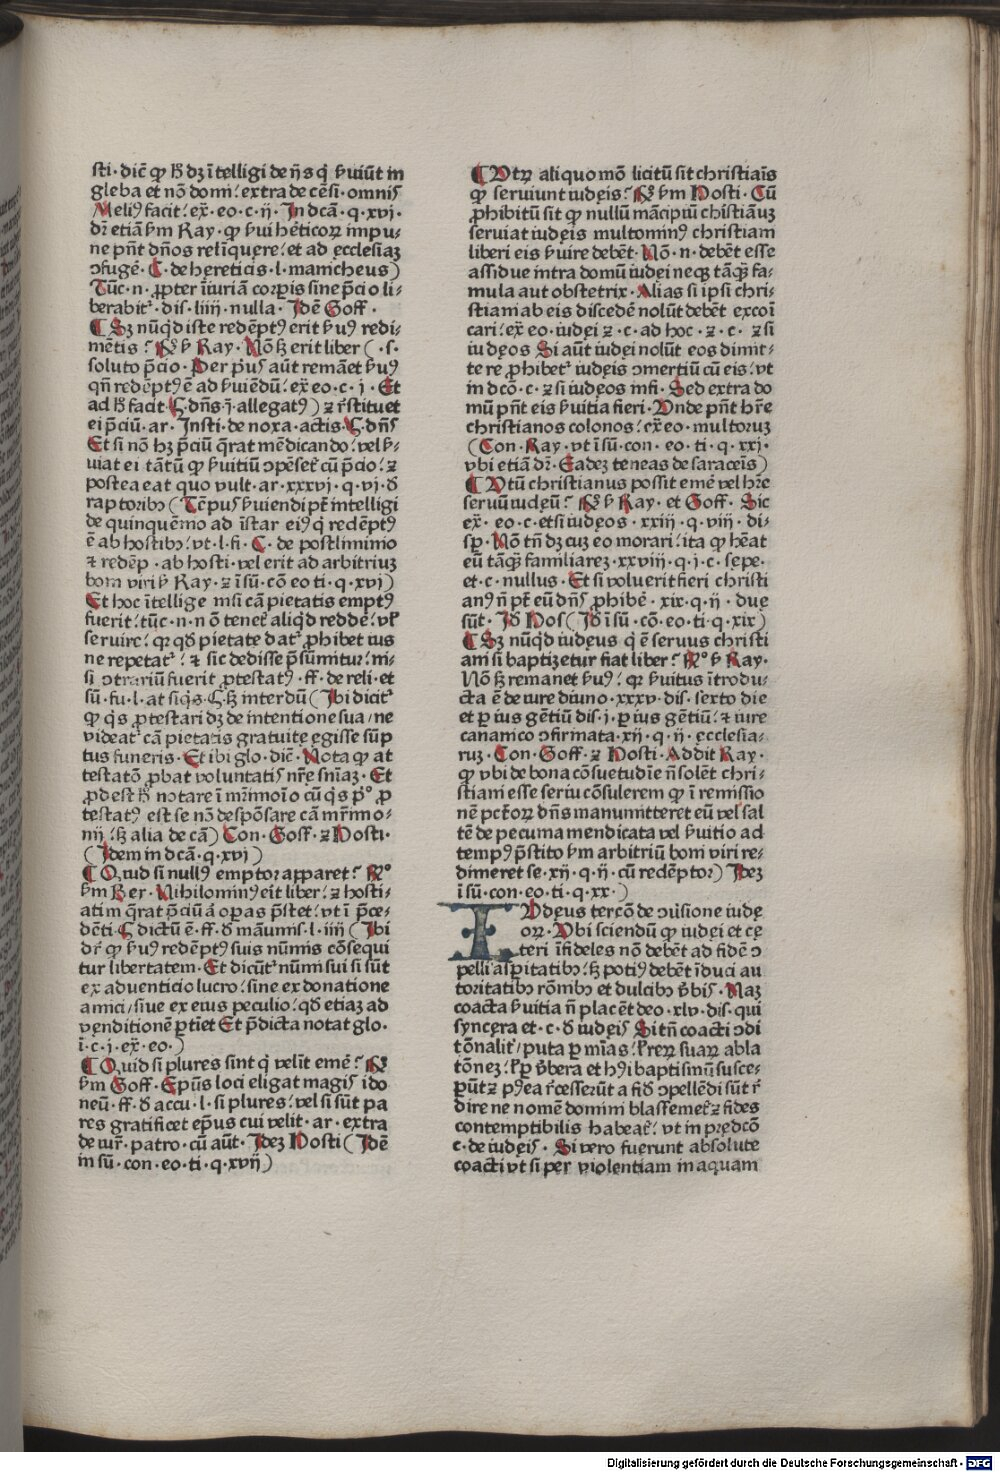 sti· dic̄ ꝙ hͦ dꝫ ītelligi de n̄s q̇ ẜuiūt in
gleba et nō domi᷑: extra de cēsi· omnis
Meliꝰ facit: ex̄· eo· c· ij· In dcā· q· xvj·
dr̄ etiā ẜm Ray· ꝙ ẜui hēticoꝝ impu-
ne pn̄t dn̄os relīquere: et ad ęcclesiaꝫ
ↄfugē· C· de hęreticis· l· manicheus)
Tūc· n· ꝓpter īiuriā corpis sine p̄cio li-
berabit᷑· dis· liiij· nulla· Idē Goff·
¶ Sꝫ nūq̇d iste redēptꝰ erit ẜuꝰ redi-
mētis? ꝶ ẜ Ray· Nō ẜꝫ erit liber (·s·
soluto p̄cio· Per pͥus aūt remāet ẜuꝰ
qn̄ redēptꝰ ē ad ẜuiēdū: ex̄ eo· c· j· Et
ad hͦ facit· §· dn̄s· j· allegatꝰ) ⁊ r̄stituet
ei p̄ciū· ar· Insti· de noxa· actis· §· dn̄s
Et si nō hꝫ p̄ciū q̄rat mēdicando: vel ẜ-
uiat ei tātū ꝙ ẜuitiū ↄpēset᷑ cū p̄cio: ⁊
postea eat quo vult· ar· xxxvj· q· vj· đ
raptoribꝰ (Tēpus ẜuiendi pt̄ intelligi
de quinquēnio ad īstar eiꝰ q̇ redēptꝰ
ē ab hostibꝰ: vt· l· fi· C· de postliminio
⁊ redēp· ab hosti· vel erit ad arbitriuꝫ
boni viri ẜ Ray· ⁊ ī sū· cō eo ti· q· xvj)
Et hoc ītellige nisi cā pietatis emptꝰ
fuerit: tūc· n· nō tenet᷑ aliq̇d reddē: vł
seruire: qꝛ qđ pietate dat᷑ ꝓhibet ius
ne repetat᷑: ⁊ sic dedisse p̄sūmitur: ni-
si ↄtrariū fuerit ꝓtestatꝰ· ff· de reli· et
sū· fu· l· at siq̇s· §· ẜꝫ interdū (Ibi dicit᷑
ꝙ q̇s ꝓtestari dꝫ de intentione sua: ne
videat᷑ cā pietatis gratuite egisse sūp
tus funeris· Et ibi glo· dic̄· Nota ꝙ at
testatō ꝓbat voluntatis nr̄e sn̄iaꝫ· Et
ꝓdest hͦ notare ī mr̄imoīo cū q̇s pͥᵒ ꝓ
testatꝰ est se nō despōsare cā mr̄imo-
nij: ẜꝫ alia de cā) Con· Goff· ⁊ Hosti·
(Idem in dcā· q· xvj)
¶ Quid si nullꝰ emptor apparet? ꝶᵒ
ẜm Ber· Nihilominꝰ eit liber: ⁊ hosti-
atim q̄rat p̄ciū ā opas p̄stet: vt ī p̄ce-
dēti· § dictū ē· ff· đ manumis· l· iiij (Ibi
dr̄ ꝙ ẜuꝰ redēptꝰ suis nūmis cōsequi
tur libertatem· Et dicūt᷑ nūmi sui si sūt
ex aduenticio lucro: siue ex donatione
amici: siue ex eius peculio: qđ etiaꝫ ad
vęnditionē ꝑtīet Et p̄dicta notat glo·
ī· c· j· ex̄· eo·)
¶ Quid si plures sint q̇ velīt emē? ꝶ
ẜm Goff· Ep̄us loci eligat magis ido
neū· ff· đ accu· l· si plures: vel si sūt pa
res gratificet ep̄us cui velit· ar· extra
de iur̄· patro· cū aūt· Ideꝫ Hosti (Idē
in sū· con· eo· ti· q· xvij)
¶ Vtꝝ aliquo mō licitū sit christiaīs
ꝙ seruiunt iudęis? ꝶ ẜm Hosti· Cū
ꝓhibitū sit ꝙ nullū mācipiū chistiāuꝫ
seruiat iudęis multominꝰ christiani
liberi eis ẜuire debēt· Nō· n· debēt esse
assidue intra domū iudęi neqꝫ tāꝗ̄ fa-
mula aut obstetrix· Alias si ipsi chri-
stiani ab eis discedē nolūt debēt excoī
cari: ex̄ eo· iudęi ⁊· c· ad hoc· ⁊· c· ⁊ si
iudęos Si aūt iudęi nolūt eos dimit-
tere ꝓhibet᷑ iudęis ↄmertiū cū eis: vt
in d· cō· c· ⁊ si iudęos infi· Sed extra do
mū pn̄t eis ẜuitia fieri· Vnde pn̄t hr̄e
christianos colonos: ex̄ eo· multoruꝫ
(Con· Ray· vt ī sū· con· eo· ti· q· xxj·
vbi etiā dr̄· Eadeꝫ teneas de saraceīs)
¶ Vtū christianus possit emē vel hr̄e
seruū iudęū? ꝶ ẜ Ray· et Goff· Sic
ex̄· eo· c· et si iudęos· xxiij· q· viij· di-
sp̄· Nō tn̄ dꝫ cuꝫ eo morari: ita ꝙ hēat
eū tāꝗ̄ familiareꝫ· xxviij· q· j· c· sępe·
et· c· nullus· Et si voluerit fieri christi
anꝰ n̄ pt̄ eū dn̄s ꝓhibē· xix· q· ij· due
sūt· Id̄ Hos (Id̄ ī sū· cō· eo· ti· q· xix)
¶ Sꝫ nūq̇d iudęus q̇ ē seruus christi
ani si baptizetur fiat liber? ꝶᵒ ẜ Ray·
Nō ẜꝫ remanet ẜuꝰ: qꝛ ẜuitus ītrodu-
cta ē de iure diuīno· xxxv· dis· sexto die
et ꝑ ius gētiū dis· j· ꝑ ius gētiū: ⁊ iure
canonico ↄfirmata· xij· q· ij· ecclesia-
ruꝫ· Con· Goff· ⁊ Hosti· Addit Ray·
ꝙ vbi de bona cōsuetudīe n̄ solēt chri-
stiani esse serui cōsulerem ꝙ ī remissio
nē pctōꝝ dn̄s manumitteret eū vel sal
tē de pecunia mendicata vel ẜuitio ad
tempꝰ p̄stito ẜm arbitriū boni viri re-
dimeret se· xij· q· ij· cū redēptor) Ideꝫ
ī sū· con· eo· ti· q· xx·)
IVdęus tercō de ↄu᷑sione iudę
oꝝ· Vbi sciendū ꝙ iudęi et cę
teri īfideles nō debēt ad fidē ↄ
pelli asꝑitatibꝰ: ẜꝫ potiꝰ debēt īduci au
toritatibꝰ rōnibꝰ et dulcibꝰ v̄bis· Naꝫ
coacta ẜuitia n̄ placēt deo· xlv· dis· qui
syncęra et· c· đ iudęis Si tn̄ coacti ↄdi
tōnalit᷑: puta ꝑ mīas: ł reꝝ suaꝝ abla
tōneꝫ: ł ꝑ v̄bera et hꝰi baptismū susce-
perūt ⁊ pꝰea r̄cesserūt a fiđ ↄpellēdi sūt r̄
dire ne nomē domini blasfemet᷑ ⁊ fides
contemptibilis habeat᷑: vt in pręd· cō
c· de iudęis· Si vero fuerunt absolute
coacti vt si per violentiam in aquam
Digitalisierung gefördert durch die Deutsche Forschungsgemeinschaft · DFG